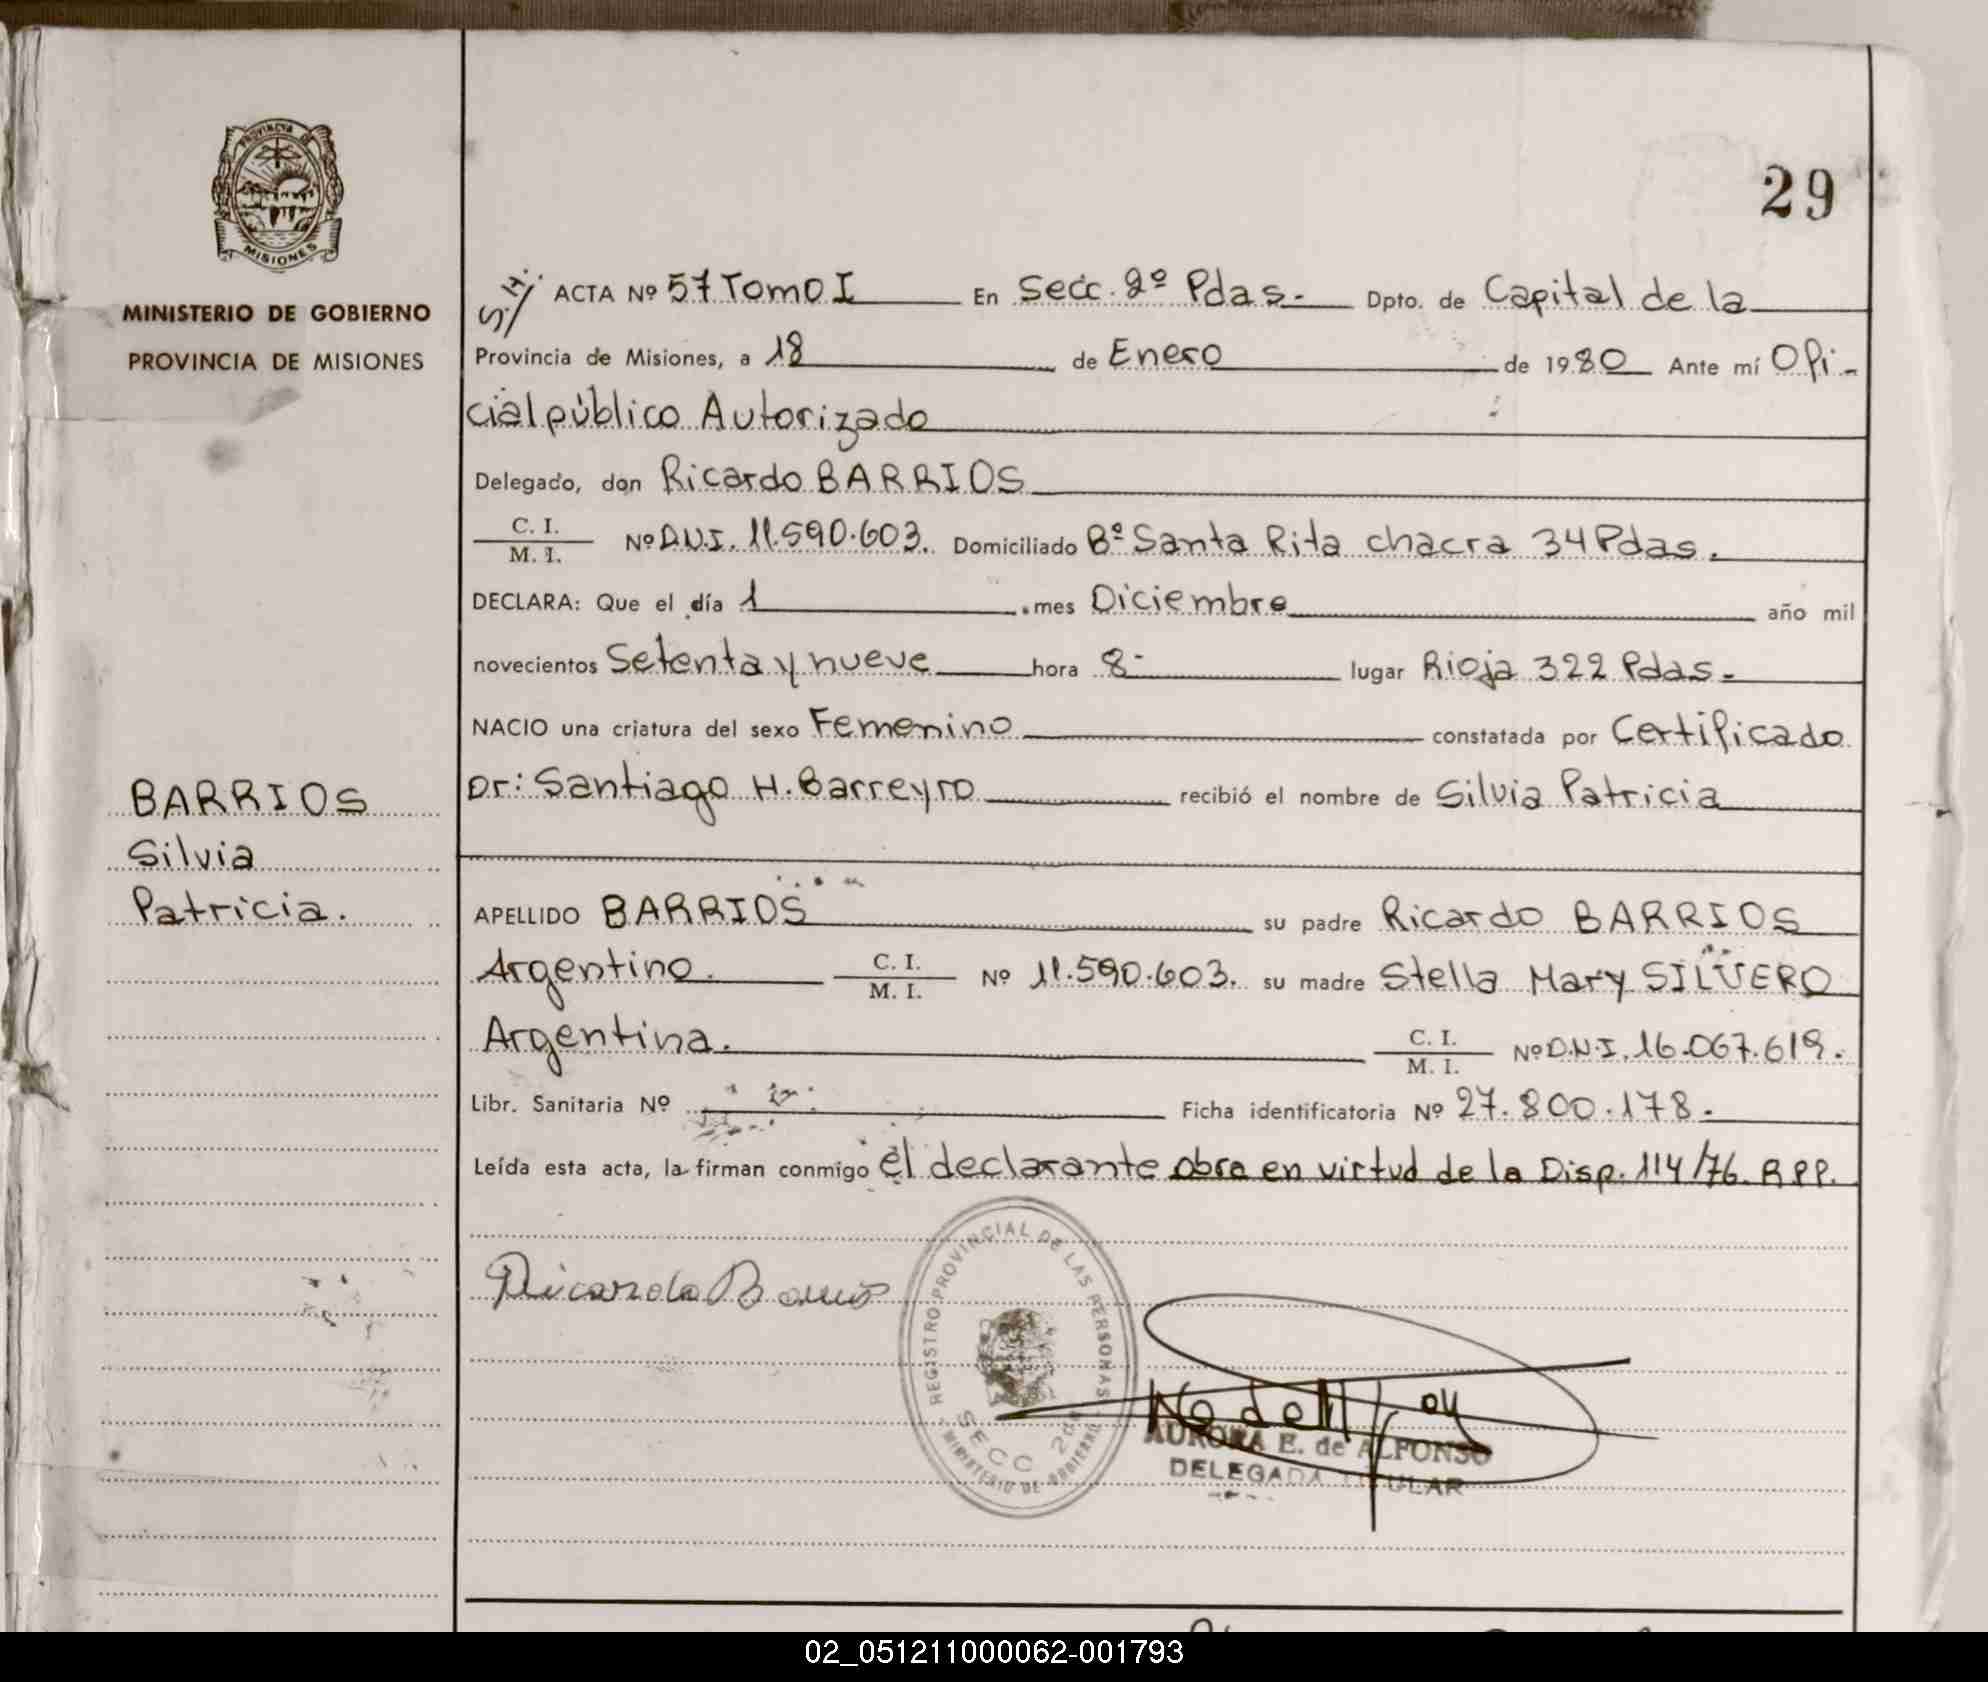 PROVINCIA DE
MISIONES
MINISTERIO DE GOBIERNO
PROVINCIA DE MISIONES
29
ACTA Nº 57 Tomo I En Secc. 2º Pdas.- Dpto. de Capital de la
Provincia de Misiones, a 18 de Enero de 1980 Ante mí Ofi-
cial público Autorizado
Delegado, don Ricardo BARRIOS
C. I.
M. I. Nº D.N.I. 11.590.603. Domiciliado Bº Santa Rita chacra 34 Pdas.
DECLARA: Que el día 1 mes Diciembre año mil
novecientos Setenta y nueve hora 8- lugar Rioja 322 Pdas.-
NACIO una criatura del sexo Femenino constatada por Certificado
Dr: Santiago H. Barreyro recibió el nombre de Silvia Patricia
BARRIOS
Silvia
Patricia.
APELLIDO BARRIOS su padre Ricardo BARRIOS
Argentino. C. I.
M. I. Nº 11.590.603. su madre Stella Mary SILVERO
Argentina. C. I.
M. I. Nº D.N.I. 16.067.619.
Libr. Sanitaria Nº Ficha identificatoria Nº 27.800.178.
Leída esta acta, la firman conmigo él declarante obra en virtud de la Disp. 114/76. RPP.
Ricardo Barrios
REGISTRO PROVINCIAL DE LAS PERSONAS
SECC 2da
AURORA E. de ALFONSO
DELEGADA TITULAR
02_051211000062-001793